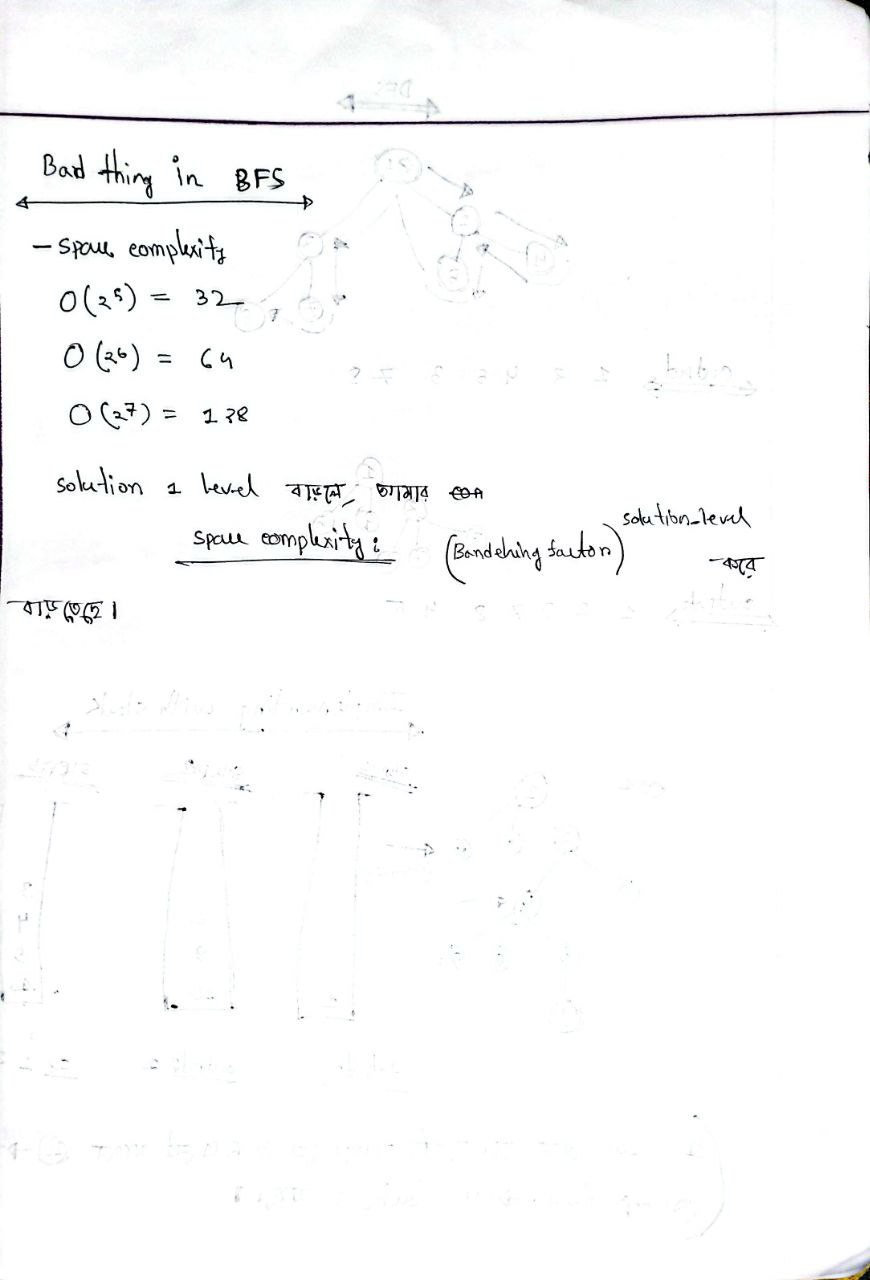 Bad thing in BFS
- space complexity
O(2⁵) = 32
O(2⁶) = 64
O(2⁷) = 128
solution 1 level বাড়লে, আমার
space complexity: (Bandching factor)^solution_level করে
বাড়তেছে।